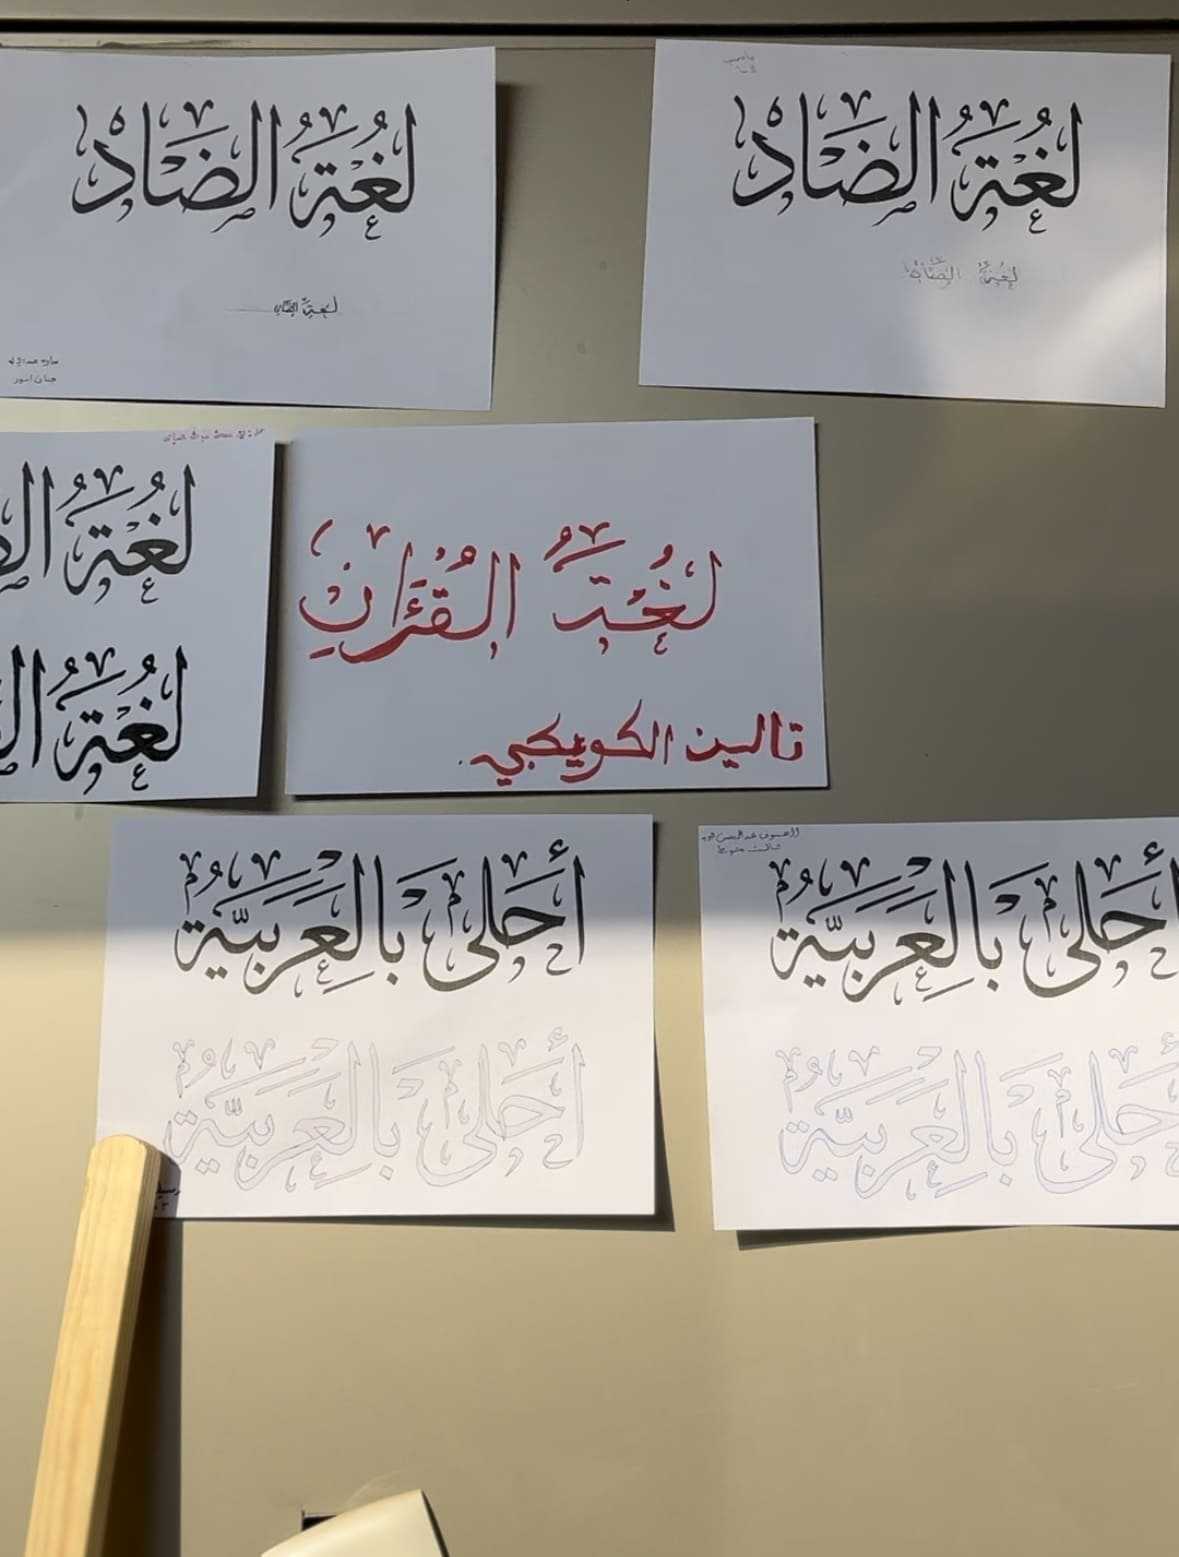 لُغَةُ الضَّادْ
لغة الضاد
لُغَةُ الضَّادْ
لغة الضاد
لُغَةُ
لُغَةُ
لُغَةُ القُرْآنِ
تالين الكويكبي
أَحلى بالعَرَبيَّةُ
أَحلى بالعَرَبيَّةُ
أَحلى بالعِرَبيَّةُ
أَحلى بالعِرَبيَّةُ